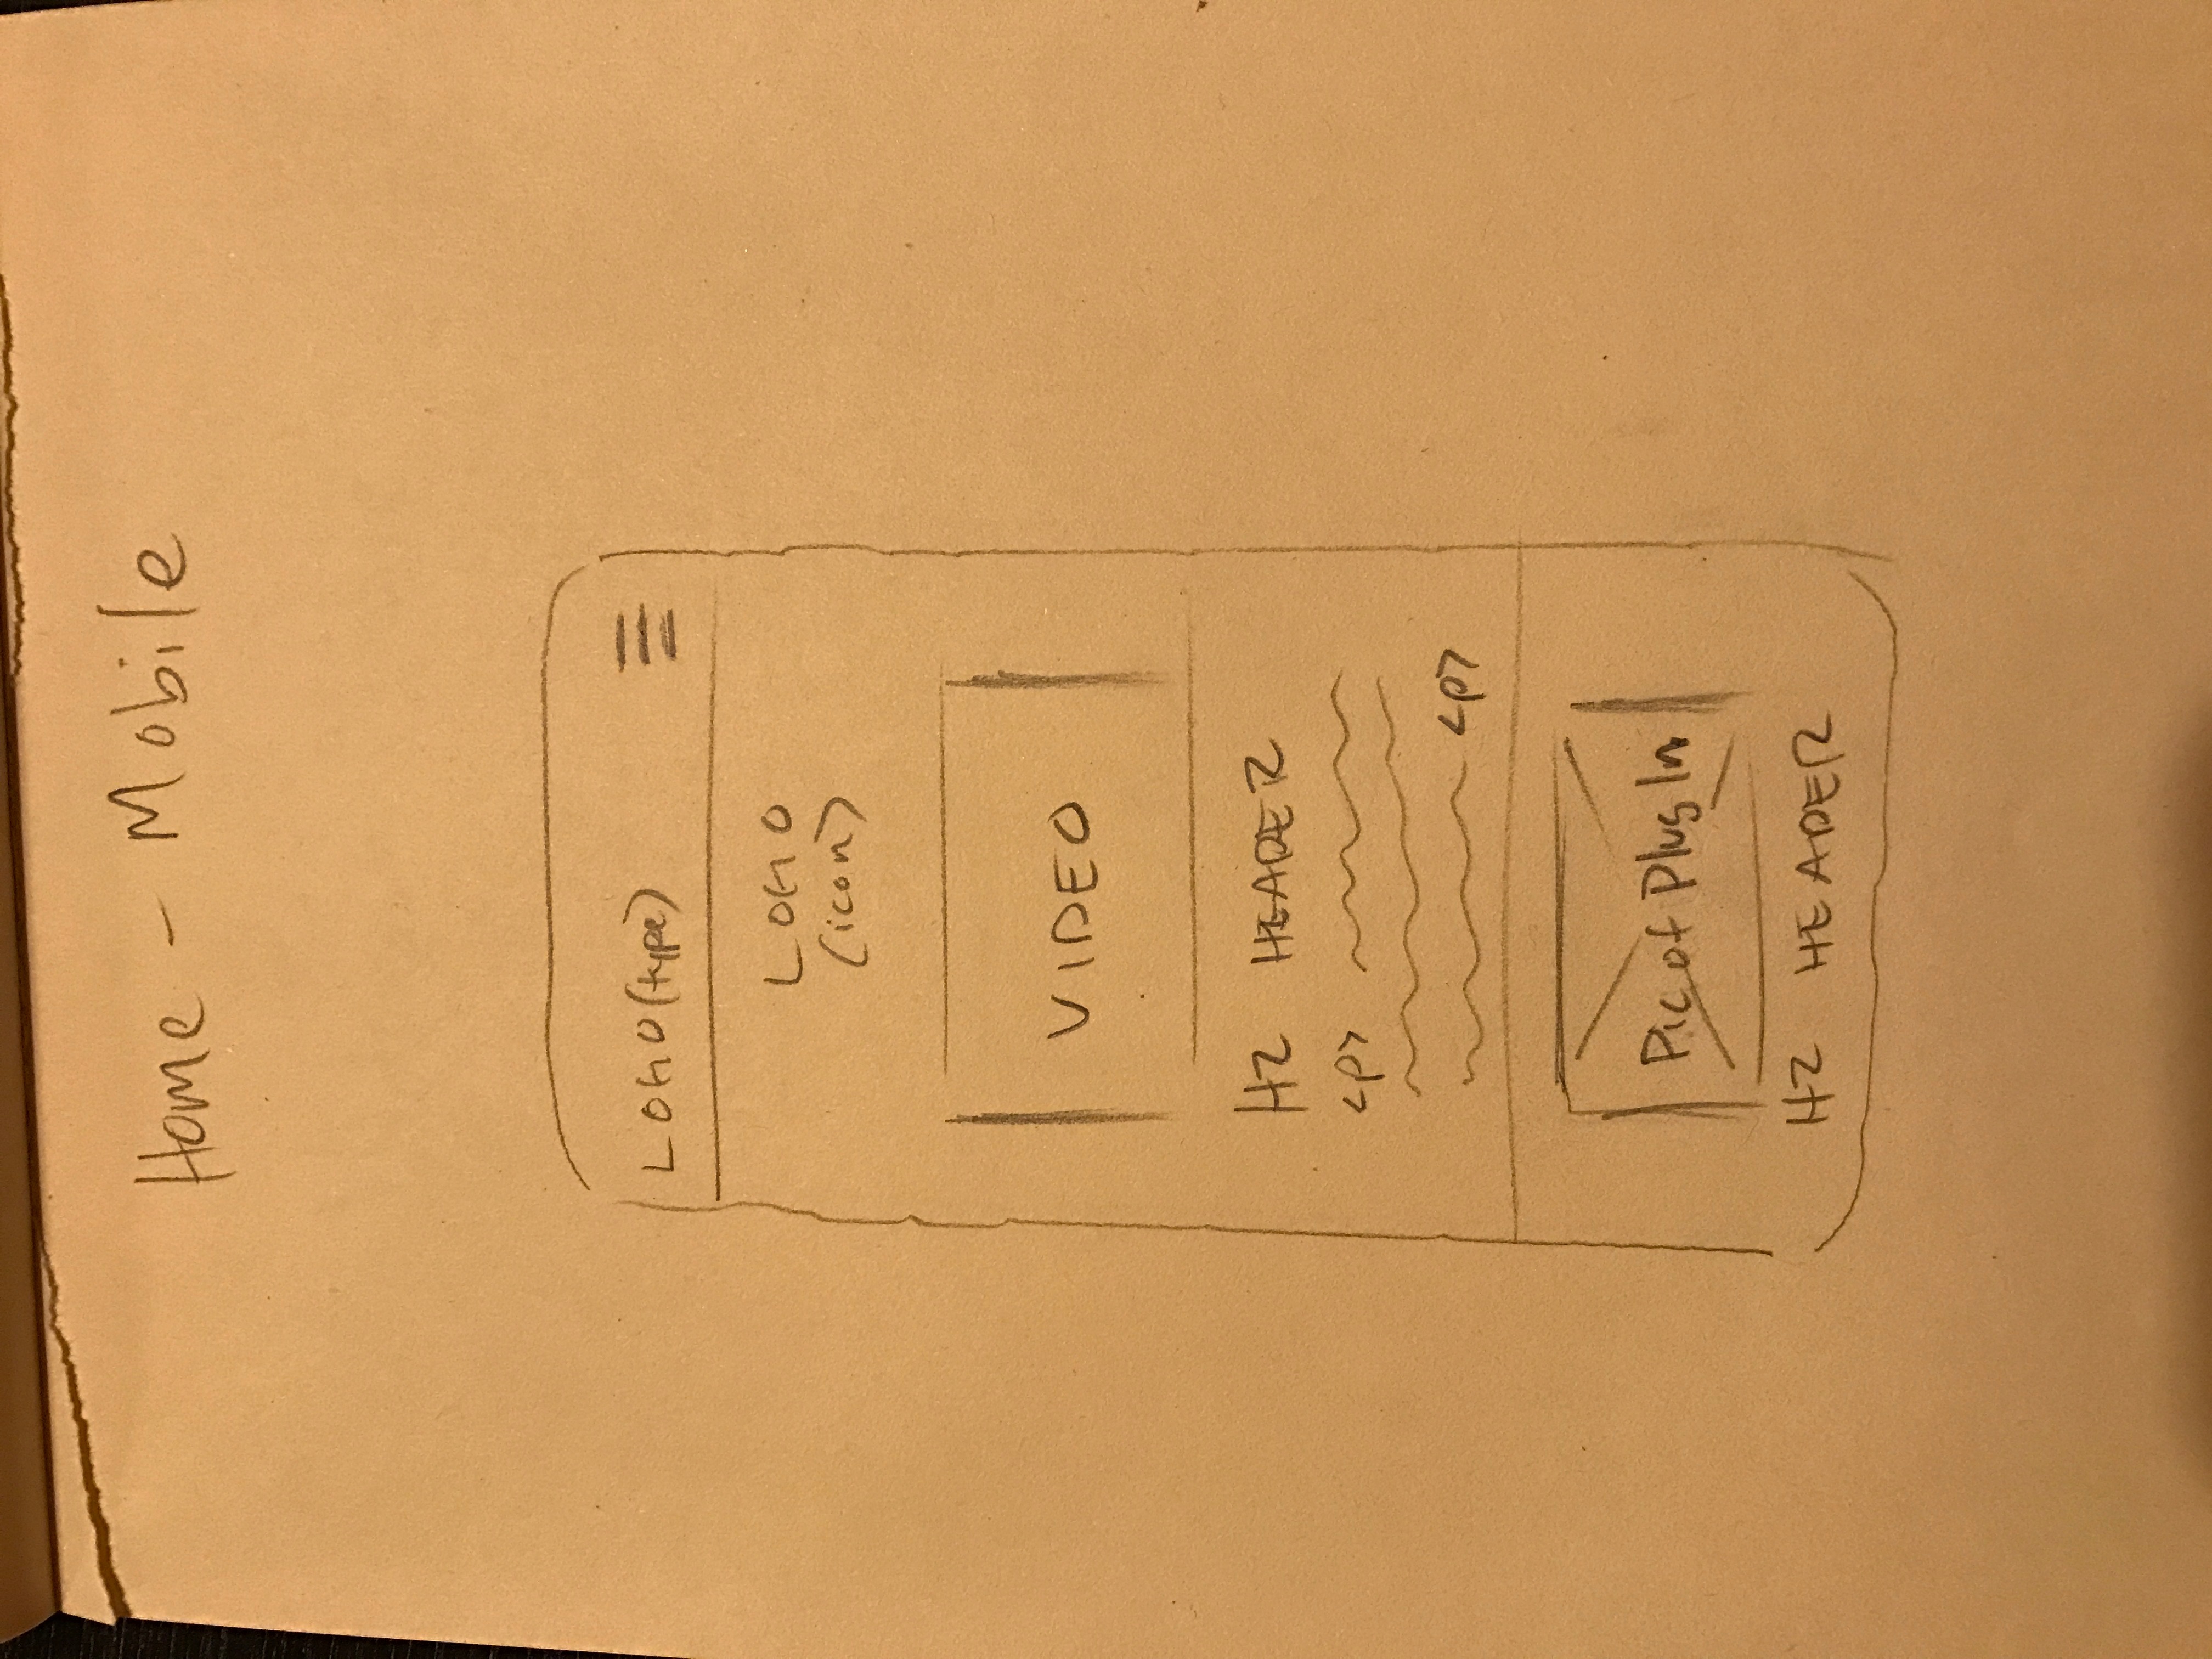 Home - Mobile
LOGO (type)
LOGO
(icon)
VIDEO
H2 HEADER
<p>
<p>
Pic of Plug In
H2 HEADER